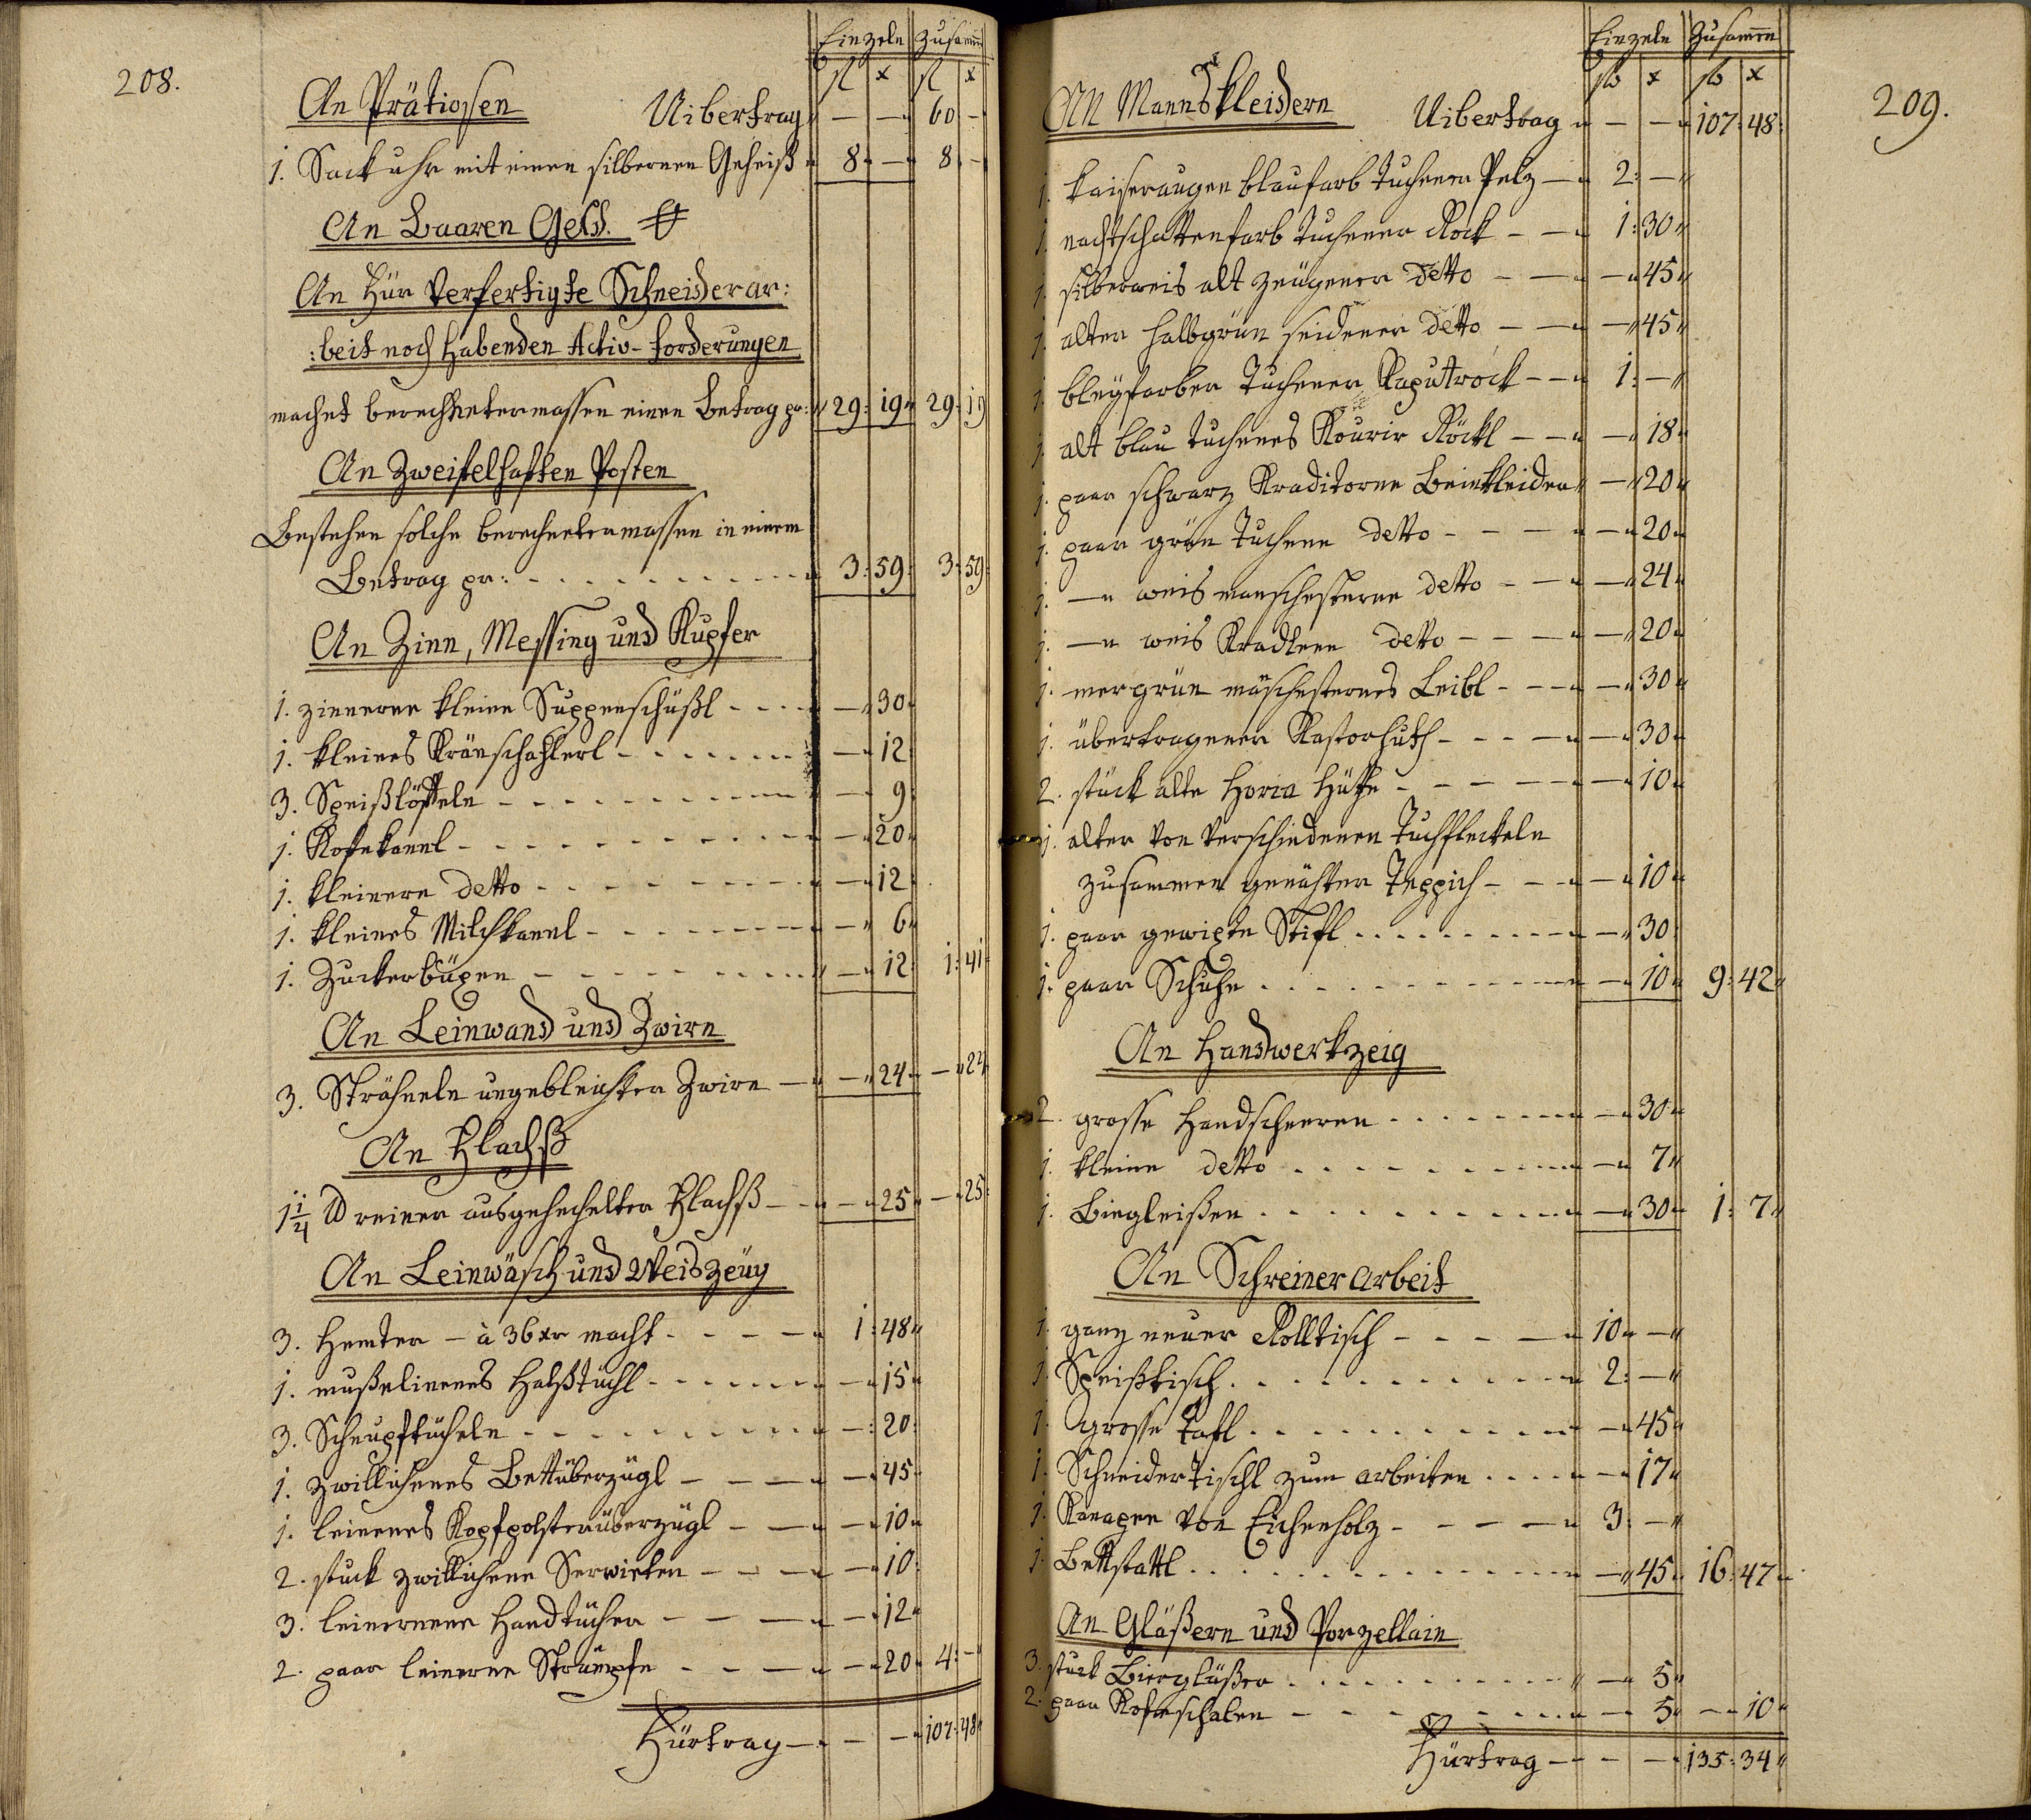 208.
Einzeln Zusamm
fl x fl x
An Prätiossen Uibertrag — — 60 —
1. Sackuhr mit einen silbernen Geheiß 8 — 8 —
An Baaren Geld.
An Für Verfertigte Schneiderar:
:beit noch Habenden Activ-Forderungen
machet berechnetermassen einen Betrag pr: 29: 19 29: 19
An Zweifelhaften Posten
Bestehen solche berechnetermassen in einem
Betrag pr: 3: 59 3: 59
An Zinn, Messing und Kupfer
1. zinnerne kleine Suppenschüßl — 30
1. kleines Kränschahlerl — 12
3. Speißlöffeln — 9
1. Kofekanl — 20
1. kleinere detto — 12
1. kleines Milchkanl — 6
1. Zuckerbüxen — 12 1: 41
An Leinwand und Zwirn
3. Strähneln ungebleichter Zwirn — 24 — 24
An Flachß
1 1/4 ℔ reiner ausgehechelter Flachß — 25 — 25
An Leinwäsch und Weiszeüg
3. Hemter — à 36 xr macht 1: 48
1. mußelinenes Halßtüchl — 15
3. Schnupftücheln — 20
1. zwillichenes Bettüberzügl — 45
1. leinenes Kopfpolsterüberzügl — 10
2. stuck zwillichene Servieten — 10
3. leinernene Handtücher — 12
2. paar leinerne Strümpfe — 20 4: —
Fürtrag — — 107: 48
209.
Einzeln Zusammen
fl x fl x
An Mannskleidern Uibertrag — — 107: 48
1. kaiseraugen blaufarb tuchener Pelz 2: —
1. nachtschattenfarb tuchener Rock 1: 30
1. silberweis alt zeugener detto — 45
1. alter halbgrün seidener detto — 45
1. bleyfarber Tuchener Kaputrock 1: —
1. alt blau tuchenes Kourir Röckl — 18
1. paar schwarz Kraditorne Beinkleider — 20
1. paar grün Tuchene detto — 20
1. —„ weis manschesterne detto — 24
1. —„ weis Kradlene detto — 20
1. mergrün mäschesternes Leibl — 30
1. übertragener Kastorhuth — 30
2. stück alte Horia Hüthe — 10
1. alter von verschiedenen Tuchfleckeln
zusammen genähter Teppich — 10
1. paar gewixte Stifl — 30
1. paar Schuhe — 10 9: 42
An Handwerkzeig
2. grosse Handscheeren — 30
1. kleine detto — 7
1. Biegleißen — 30 1: 7
An Schreinerarbeit
1. ganz neuer Rolltisch 10 —
1. Speißtisch 2: —
1. Grosse Tafl — 45
1. Schneidertischl zum arbeiten — 17
1. Kanapee von Eichenholz 3: —
1. Bettstattl — 45 16: 47
An Gläßern und Porzellain
3. stuck Biergläßer — 5
2. paar Kofeschalen — 5 — 10
Fürtrag — — 135: 34